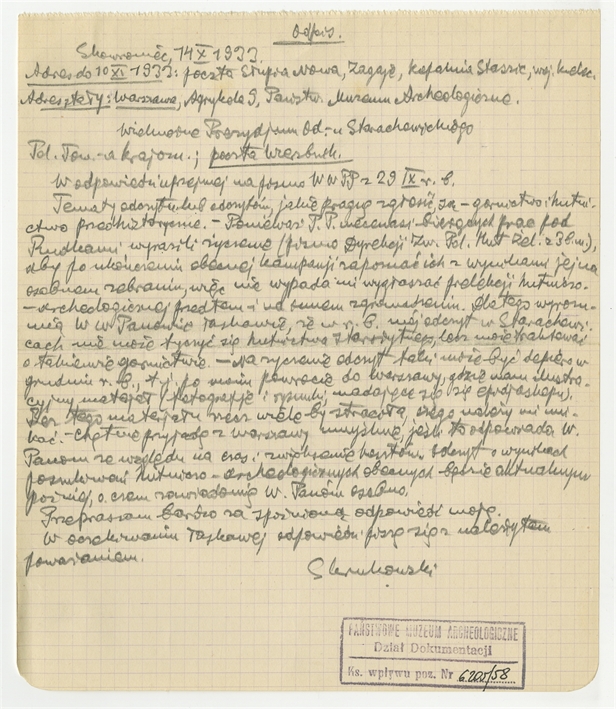 Odpis.
Skowroniec, 14 X 1933.
Adres do 10 XI 1933: poczta Słupia Nowa, Zagaje, Kopalnia Staszic, woj. kielec.
Adres stały: Warszawa, Agrykola 9, Państw. Muzeum Archeologiczne.
Wielmożne Prezydjum Od-u Starachowickiego
Pol. Tow-a Krajozn.; poczta Wierzbnik.
W odpowiedzi uprzejmej na pismo WWPP z 29 IX r. b.
Tematy odczytu lub odczytów, jakie pragnę zgłosić są – górnictwo i hutni-
ctwo przedhistoryczne. – Ponieważ P.P. mecenasi bieżących prac pod
Rudkami wyrazili życzenie (pismo Dyrekcji Zw. Pol. Hut Żel. z 3 b.m.),
ażby po ukończeniu obecnej kampanji zapoznać ich z wynikami jej na
osobnem zebraniu, więc nie wypada mi wygłaszać prelekcji hutniczo-
-archeologicznej przedtem i na innem zgromadzeniu. Dlatego wyrozu-
mią W W Panowie łaskawie, że w r. b. mój odczyt w Starachowi-
cach nie może tyczyć się hutnictwa starożytnego, lecz może traktować
o takiemże górnictwie. – Na życzenie odczyt taki może być dopiero w
grudniu r. b., t. j. po moim powrocie do Warszawy, gdzie mam ilustra-
cyjny materjał (fotografje i rysunki, nadające się do epidjaskopu),
Bez tego materjału rzecz wiele by straciła, czego należy mi uni-
kać. – Chętnie przyjadę z Warszawy umyślnie, jeśli to odpowiada W.
Panom ze względu na czas i zwiększenie kosztów, odczyt o wynikach
poszukiwań hutniczo-archeologicznych obecnych będzie aktualnym
później, o czem zawiadomię W. Panów osobno.
Przepraszam bardzo za spóźnioną odpowiedź moją.
W oczekiwaniu łaskawej odpowiedzi piszę się z należytem
poważaniem.
S Krukowski
PAŃSTWOWE MUZEUM ARCHEOLOGICZNE
Dział Dokumentacji
Ks. wpływu poz. Nr 6205/58